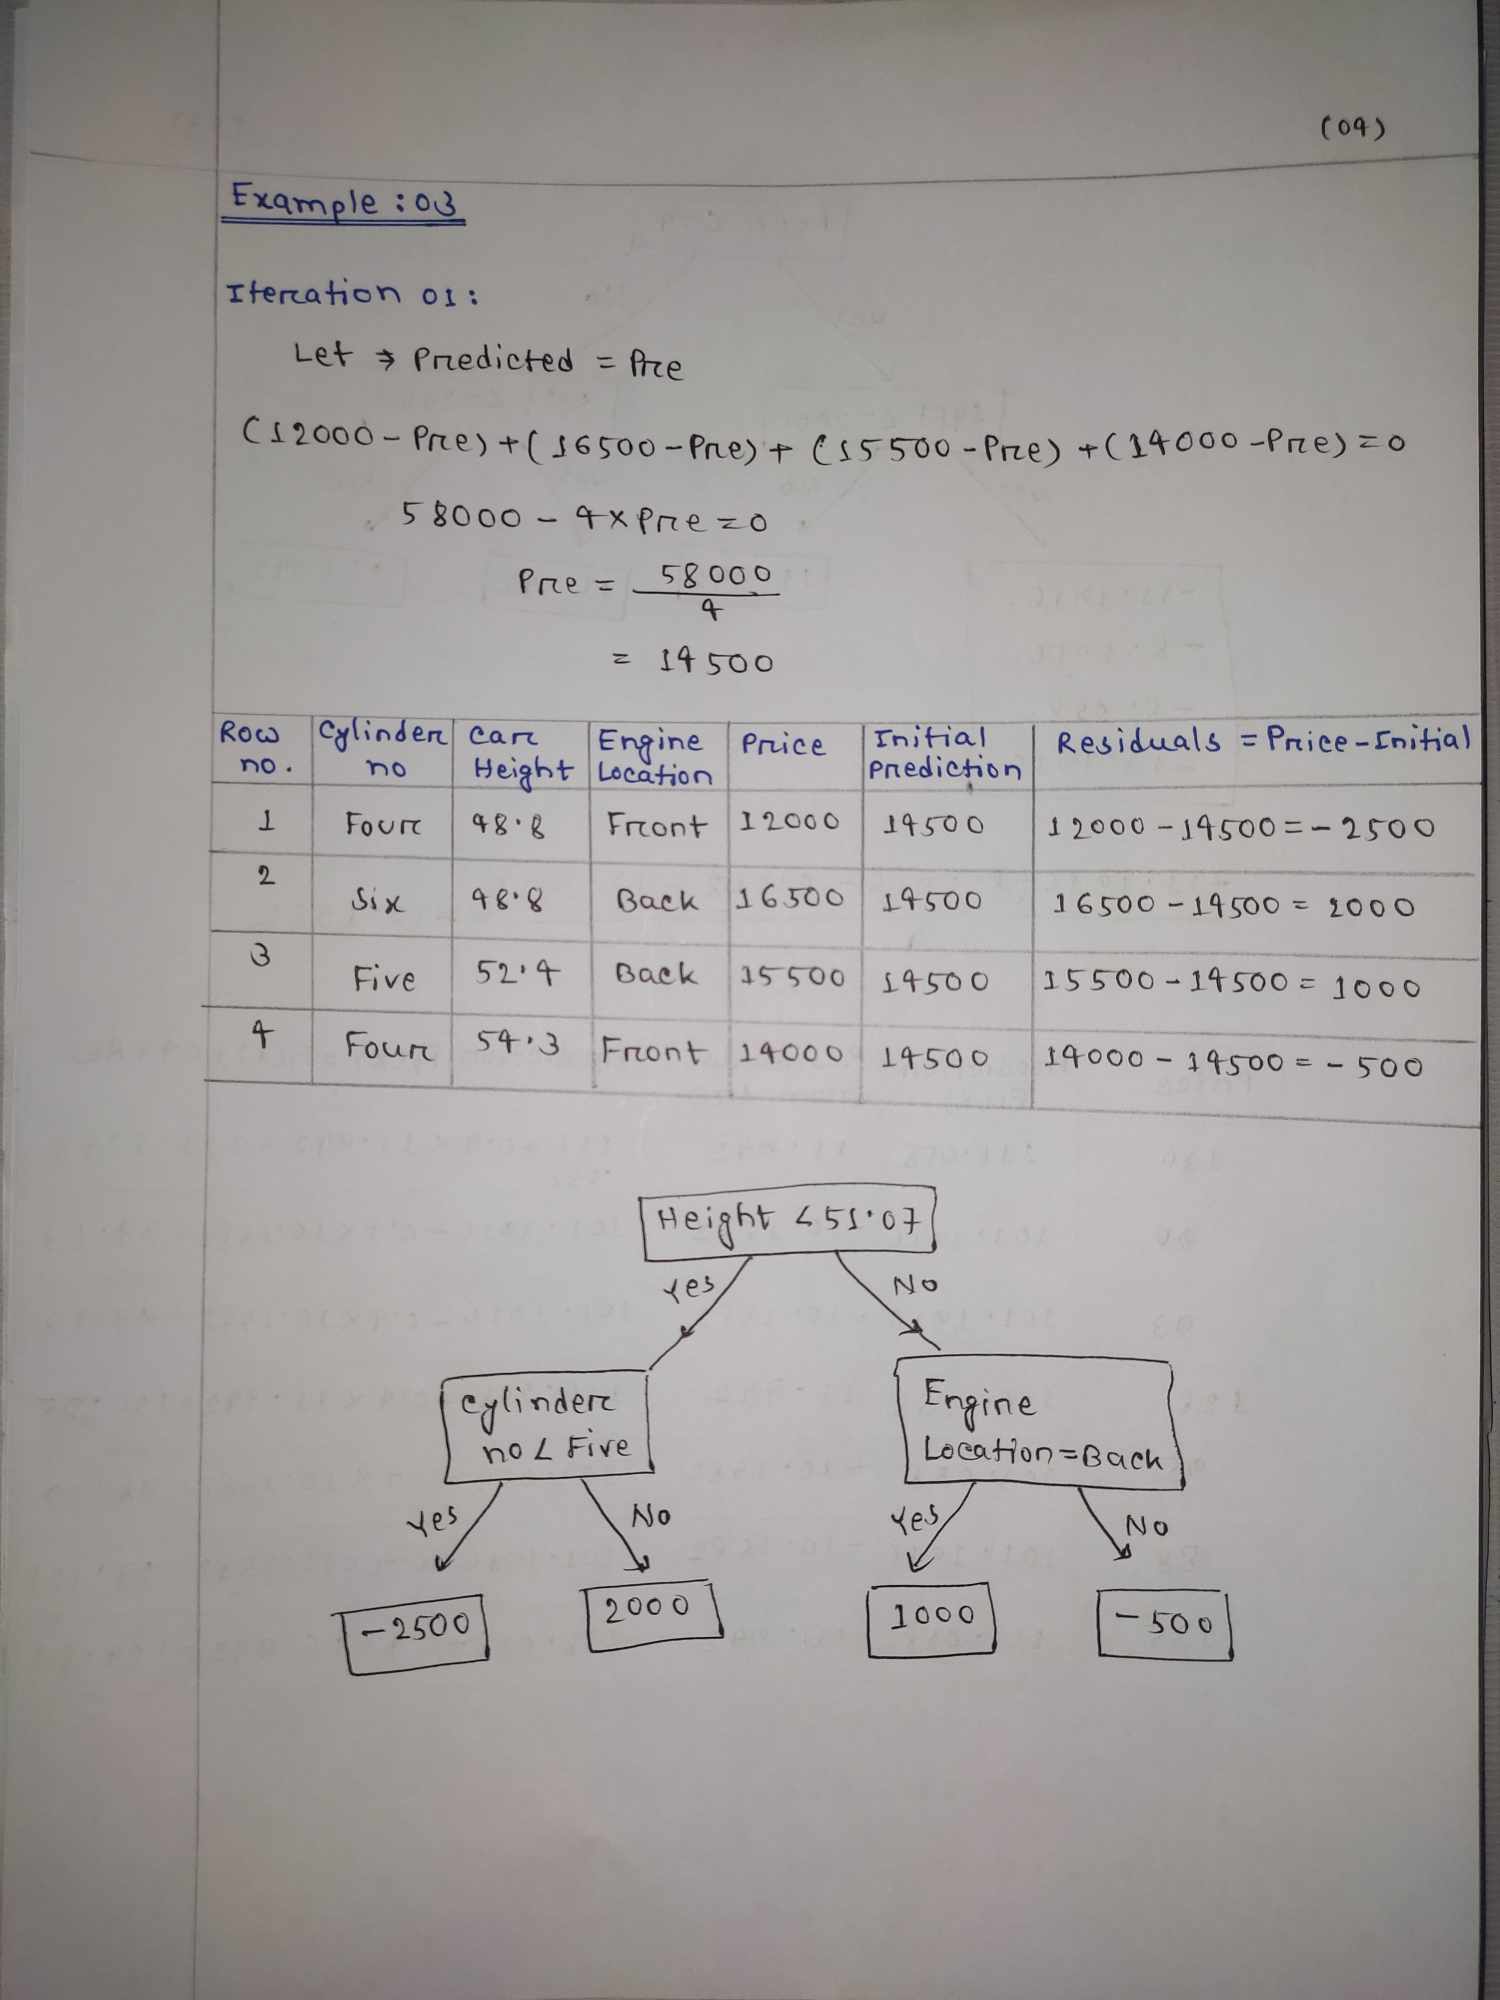 (04)
Example : 03
Iteration 01 :
Let → Predicted = Pre
(12000 - Pre) + (16500 - Pre) + (15500 - Pre) + (14000 - Pre) = 0
58000 - 4 x Pre = 0
Pre = 58000
4
= 14500
Row no. Cylinder no Car Height Engine Location Price Initial Prediction Residuals = Price - Initial
1 Four 48.8 Front 12000 14500 12000 - 14500 = - 2500
2 Six 48.8 Back 16500 14500 16500 - 14500 = 2000
3 Five 52.4 Back 15500 14500 15500 - 14500 = 1000
4 Four 54.3 Front 14000 14500 14000 - 14500 = - 500
Height < 51.07
Yes No
Cylinder
no < Five
Engine
Location = Back
Yes No Yes No
-2500 2000 1000 -500